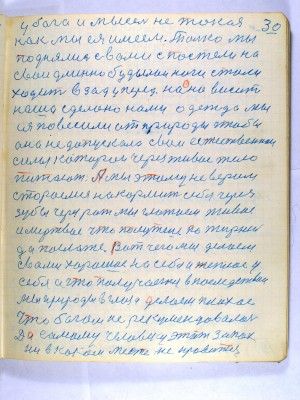 у бога и мысел не токая
как мы ся имеем. Только мы
поднялися с вами с постели на
свои длинно будылыи ноги стали
ходить взад упереd на нас висит
наша сделано нами одежда мы
ия повесили от природы чтобы
она не допускала своей естественной
силы которои через живое тело
питают. А мы этому не верем
стораемся накормить себя через
зубы через рот мы глотаем живое
и мертвое что получтее по жирней
да послаже. Вот чего мы делаем
с вами хорошае на себе и теплае у
себя а что получается в последствии
мы природы в глаза делаем плохое
Что богам не рекомендовалось
Да самому человеку этот запах
ни в каком месте не нравитец
30